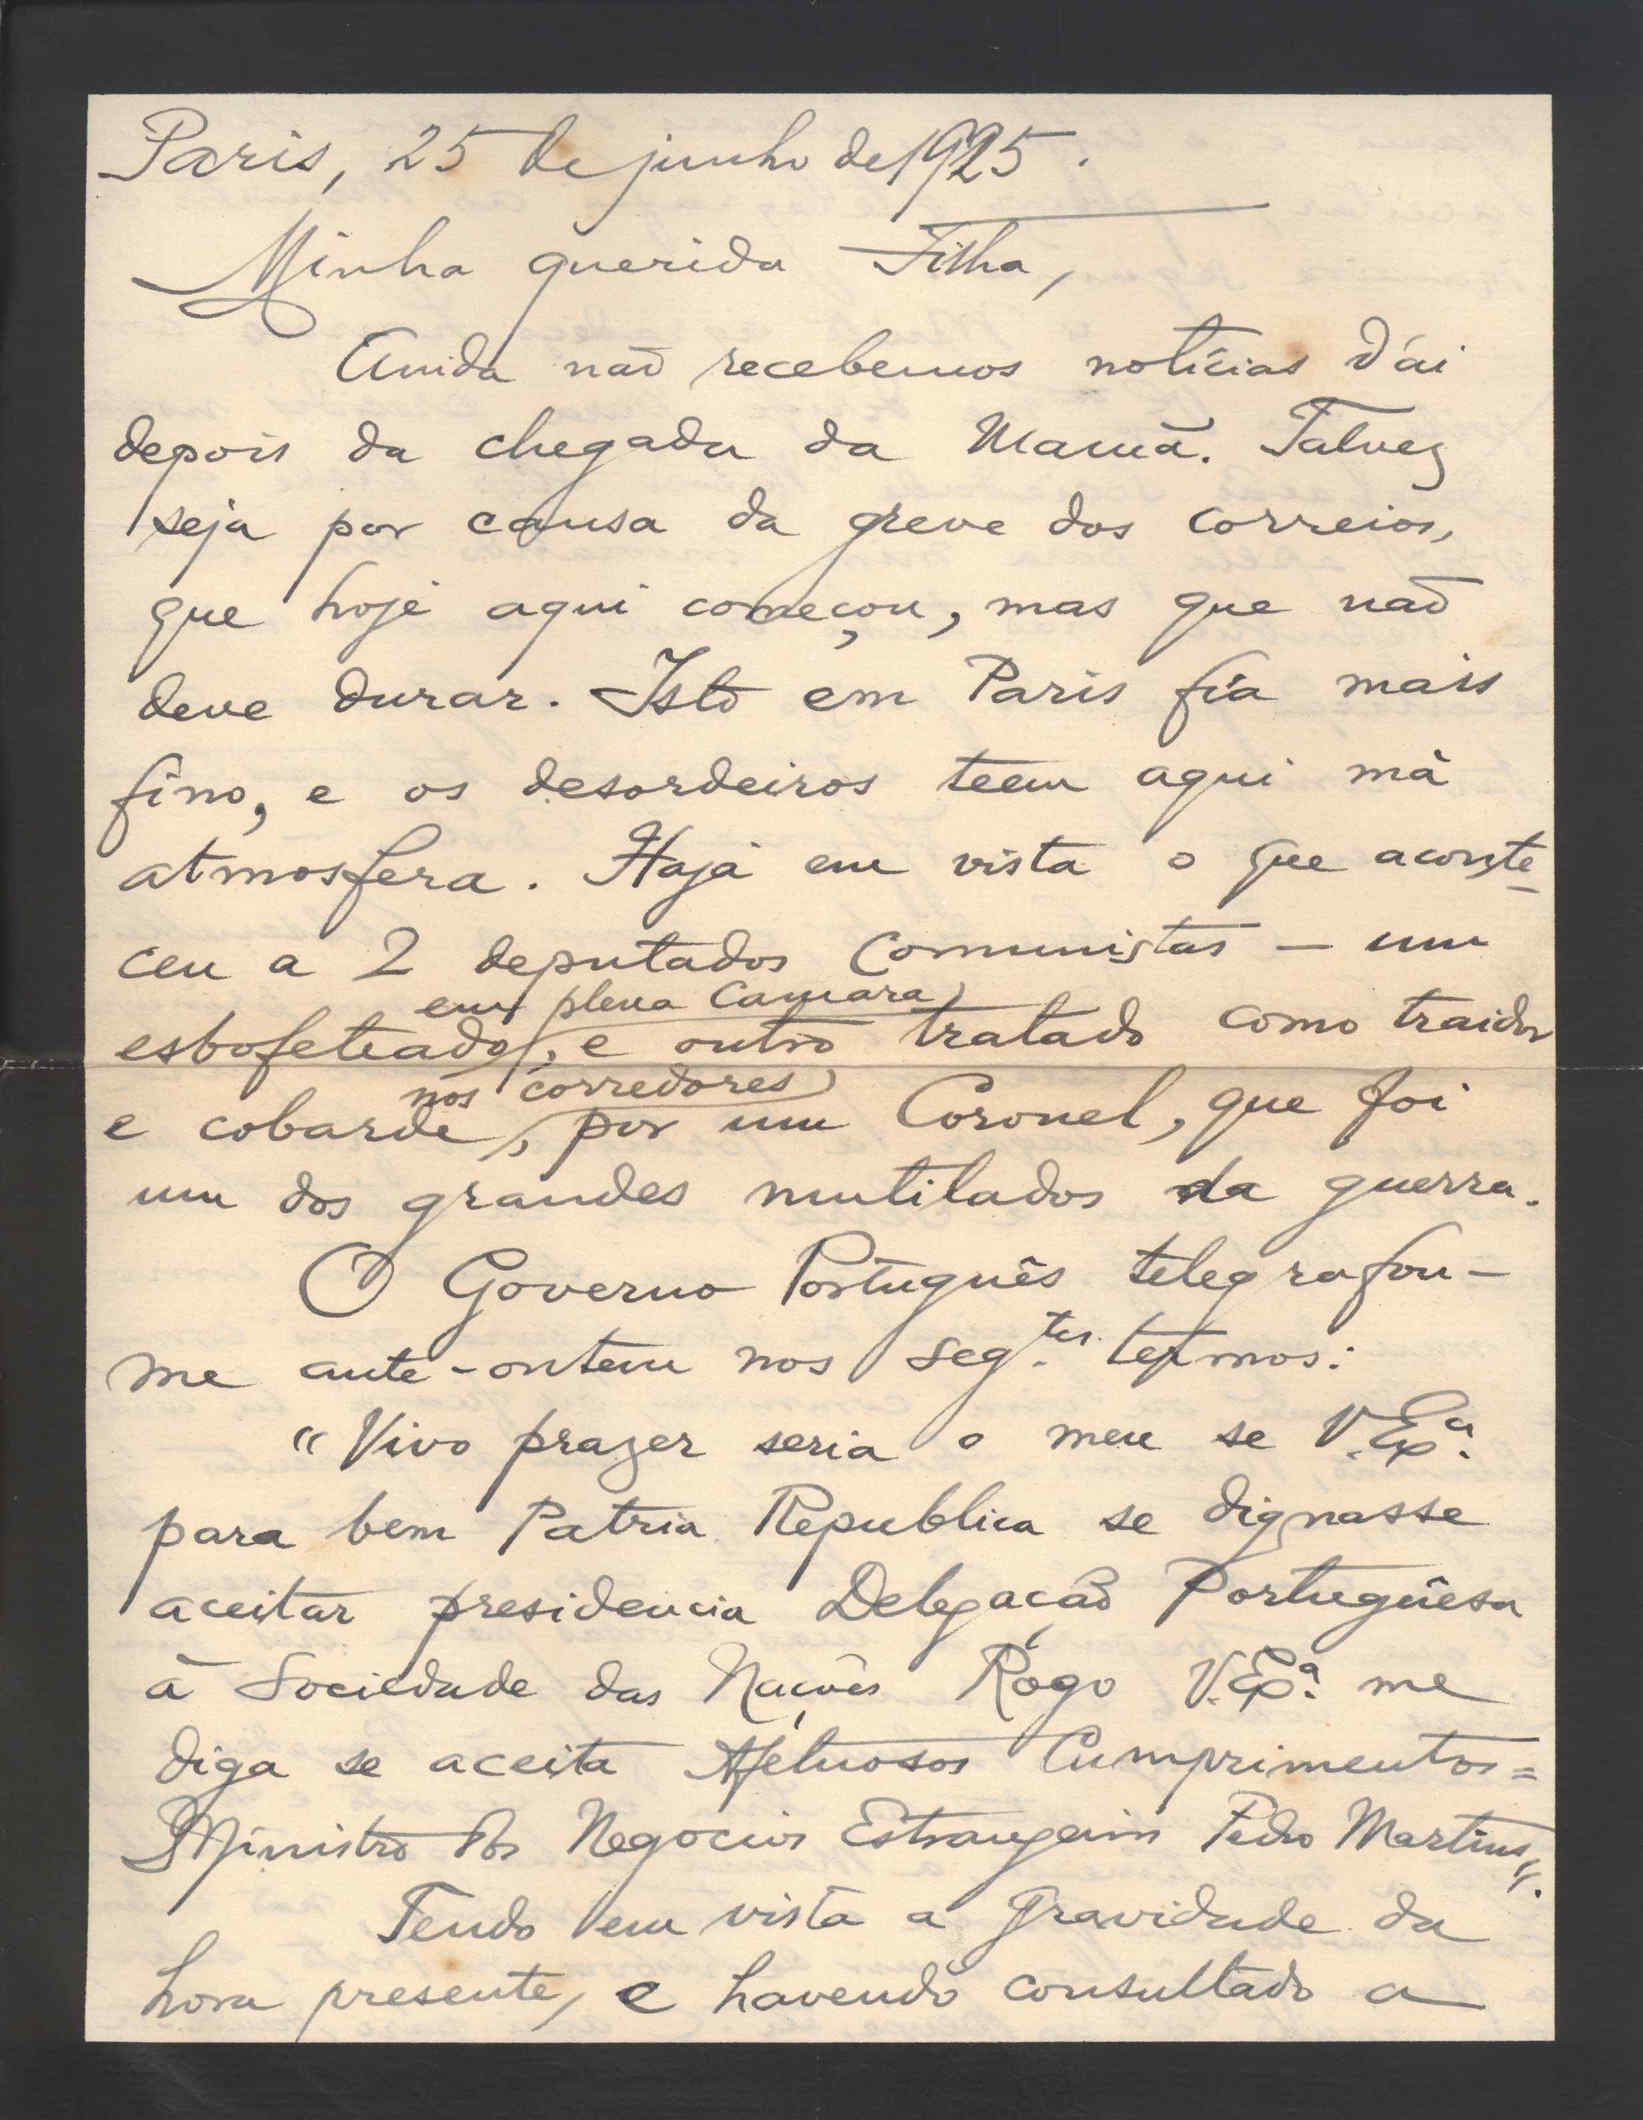 Paris, 25 de junho de 1925.
Minha querida Filha,
Ainda não recebemos notícias d'ái
depois da chegada da Mamã. Talvez
seja por causa da greve dos correios,
que hoje aqui começou, mas que não
deve durar. Isto em Paris fia mais
fino, e os desordeiros teem aqui má
atmosfera. Haja em vista o que aconte-
ceu a 2 deputados comunistas — um
em plena Camara
esbofeteado, e outro tratado como traidor
nos corredores
e cobarde, por um Coronel, que foi
um dos grandes mutilados da guerra.
O Governo Português telegrafou-
me ante-ontem nos seg.tes termos:
"Vivo prazer seria o meu se V. Ex.ª
para bem Patria Republica se dignasse
aceitar presidencia Delegação Portuguêsa
à Sociedade das Nações Rógo V. Ex.ª me
diga se aceita Afetuosos Cumprimentos =
Ministro dos Negocios Estrangeiros Pedro Martins".
Tendo em vista a gravidade da
hora presente, e havendo consultado a